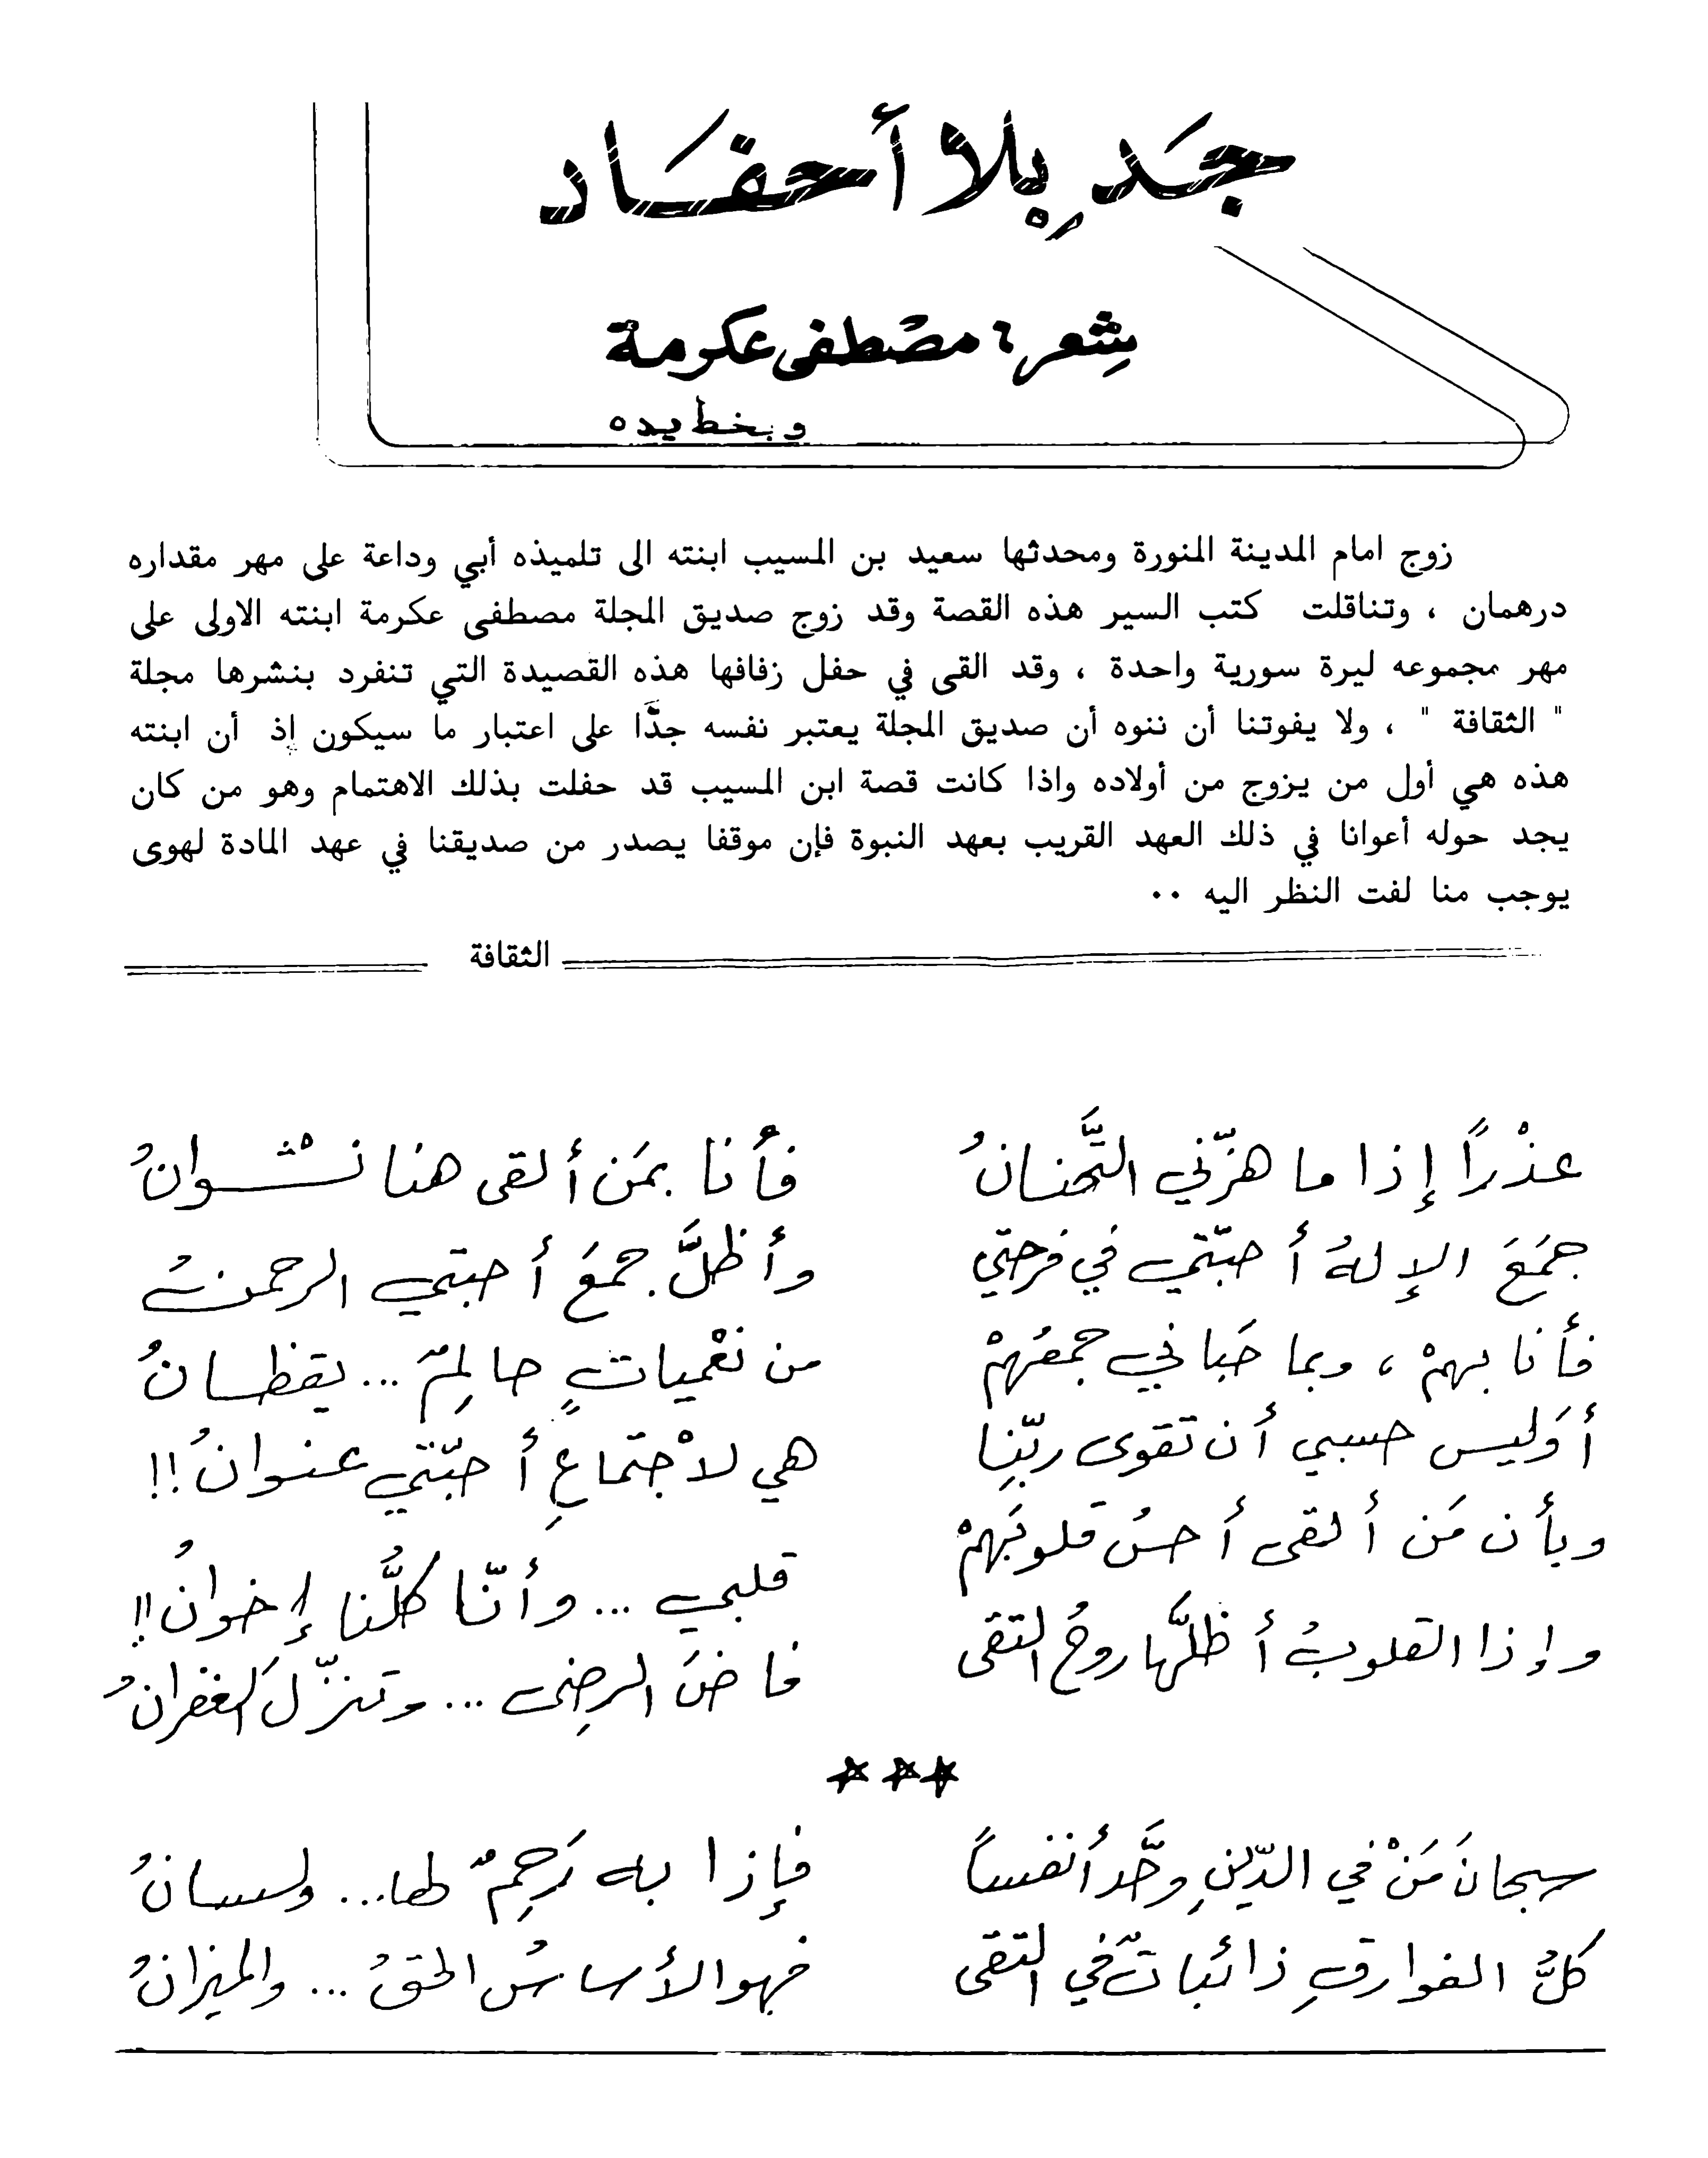 جَد بِلا أحفَاد
شِعر، مصْطفى عكرمة
وبخط يده
زوج امام المدينة المنورة ومحدثها سعيد بن المسيب ابنته الى تلميذه أبي وداعة على مهر مقداره
درهمان ، وتناقلت كتب السير هذه القصة وقد زوج صديق المجلة مصطفى عكرمة ابنته الاولى على
مهر مجموعه ليرة سورية واحدة ، وقد القى في حفل زفافها هذه القصيدة التي تنفرد بنشرها مجلة
" الثقافة " ، ولا يفوتنا أن ننوه أن صديق المجلة يعتبر نفسه جدًّا على اعتبار ما سيكون إذ أن ابنته
هذه هي أول من يزوج من أولاده واذا كانت قصة ابن المسيب قد حفلت بذلك الاهتمام وهو من كان
يجد حوله أعوانا في ذلك العهد القريب بعهد النبوة فإن موقفا يصدر من صديقنا في عهد المادة لهوى
يوجب منا لفت النظر اليه ٠٠
الثقافة
عذْراً إذا ما هزّني التَّحنانُ فأنا بمَن ألقى هنا نشْوانُ
جمَعَ الإلهُ أحبّتي في فرحتي وأظلَّ جمعَ أحبتي الرحمنُ
فأنا بهمْ ، وبما حَباني جمعُهمْ من نعْمياتٍ حالِمٌ ... يقظانُ
أوَليس حسبي أن تقوى ربّنِا هي لاجْتماعِ أحبّتي عنوانُ !!
وبأن مَن ألقى أحسُ قلوبَهمْ قلبي ... وأنّا كلُّنا إخوانُ !!
وإذا القلوبُ أظلَّها روحُ التقى فاضَ الرضِى ... وتنزّلَ الغفرانُ
***
سبحانَ مَنْ في الدّينِ وحَّد أنفساً فإذا به رَحِمٌ لها... ولسانُ
كلُّ الفوارقِ ذائباتٌ في التقى فهو الأساسُ الحقُ ... والميزانُ